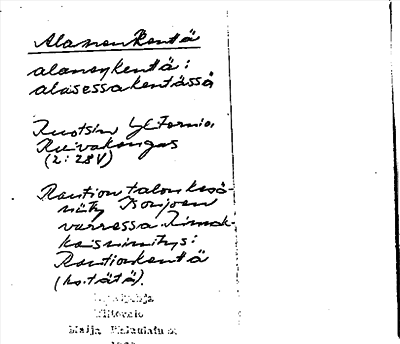 Alanenkenttä
alanenkenttä:
alasessakentässä
Ruotsin Ylitornio,
Kuivakangas
(2:28V)
Rantion talon kesä-
näty Torjoen
varressa. Rinnak-
kaisnimitys:
Rantionkenttä
(ks. tätä).
Ylitornio
Maija